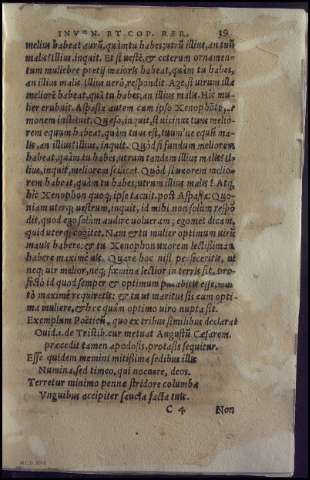 INVEN. ET COP. RER. 39
melius habeat aurũ, quàm tu habes: utrũ illud, an tuũ
malis? Illius, inquit. Et si uestẽ, & cæterum ornamen-
tum muliebre pretij maioris habeat, quàm tu habes,
an illius malis. Illius uerò, respondit. Age, si uirum illa
meliorẽ habeat, quã tu habes, an illius malis. Hic mu-
lier erubuit. Aspasia autem cum ipso Xenophõte, ser
monem instituit. Quæso, inquit, si uicinus tuus melio-
rem equum habeat, quàm tuus est, tuũ'ne equũ ma-
lis, an illius? illius, inquit. Quòd si fundum meliorem
habeat, quàm tu habes, utrum tandem illius malis? Il-
lius, inquit, meliorem scilicet. Quòd si uxorem melio-
rem habeat, quàm tu habes, utrum illius malis? Atq;
hic Xenophon quoq; ipse tacuit. post Aspasia: Quo-
niam uterq; uestrum, inquit, id mihi non solùm respõ
dit, quod ego solùm audire uolueram: egomet dicam,
quid uterq; cogitet. Nam & tu mulier optimum uirũ
mauis habere: & tu Xenophon uxorem lectißimam
habere maximè uis. Quare hoc nisi perfeceritis, ut
neq; uir melior, neq; fœmina lectior in terris sit, pro-
fectò id quod semper & optimum putabitis esse, mul
tò maximè requiretis: & tu ut maritus sis eam opti-
ma muliere, & hæc quàm optimo uiro nupta sit.
Exemplum Poëticũ, quo ex tribus similibus declarat
Ouid. de Tristib. cur metuat Augustũ Cæsarem.
præcedit tamen apodosis, protasis sequitur.
Esse quidem memini mitißima sedibus illis
Numina, sed timeo, qui nocuere, deos.
Terretur minimo pennæ stridore columba
Vnguibus accipiter saucia facta tuis.
C 4 Non